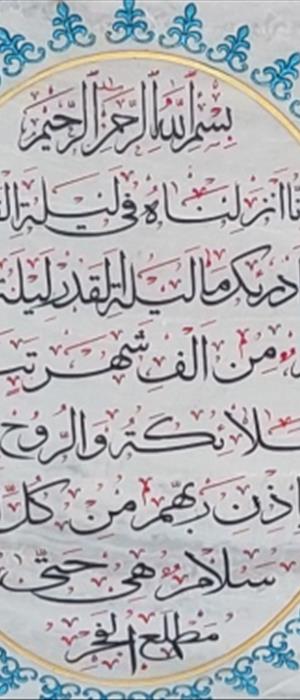 بسم الله الرحمن الرحيم
نا انزلناه في ليلة ال
ادريك ما ليلة القدر ليلة
من الف شهر تن
لائكة والروح
اذن ربهم من كل
سلام هي حتى
مطلع الفجر